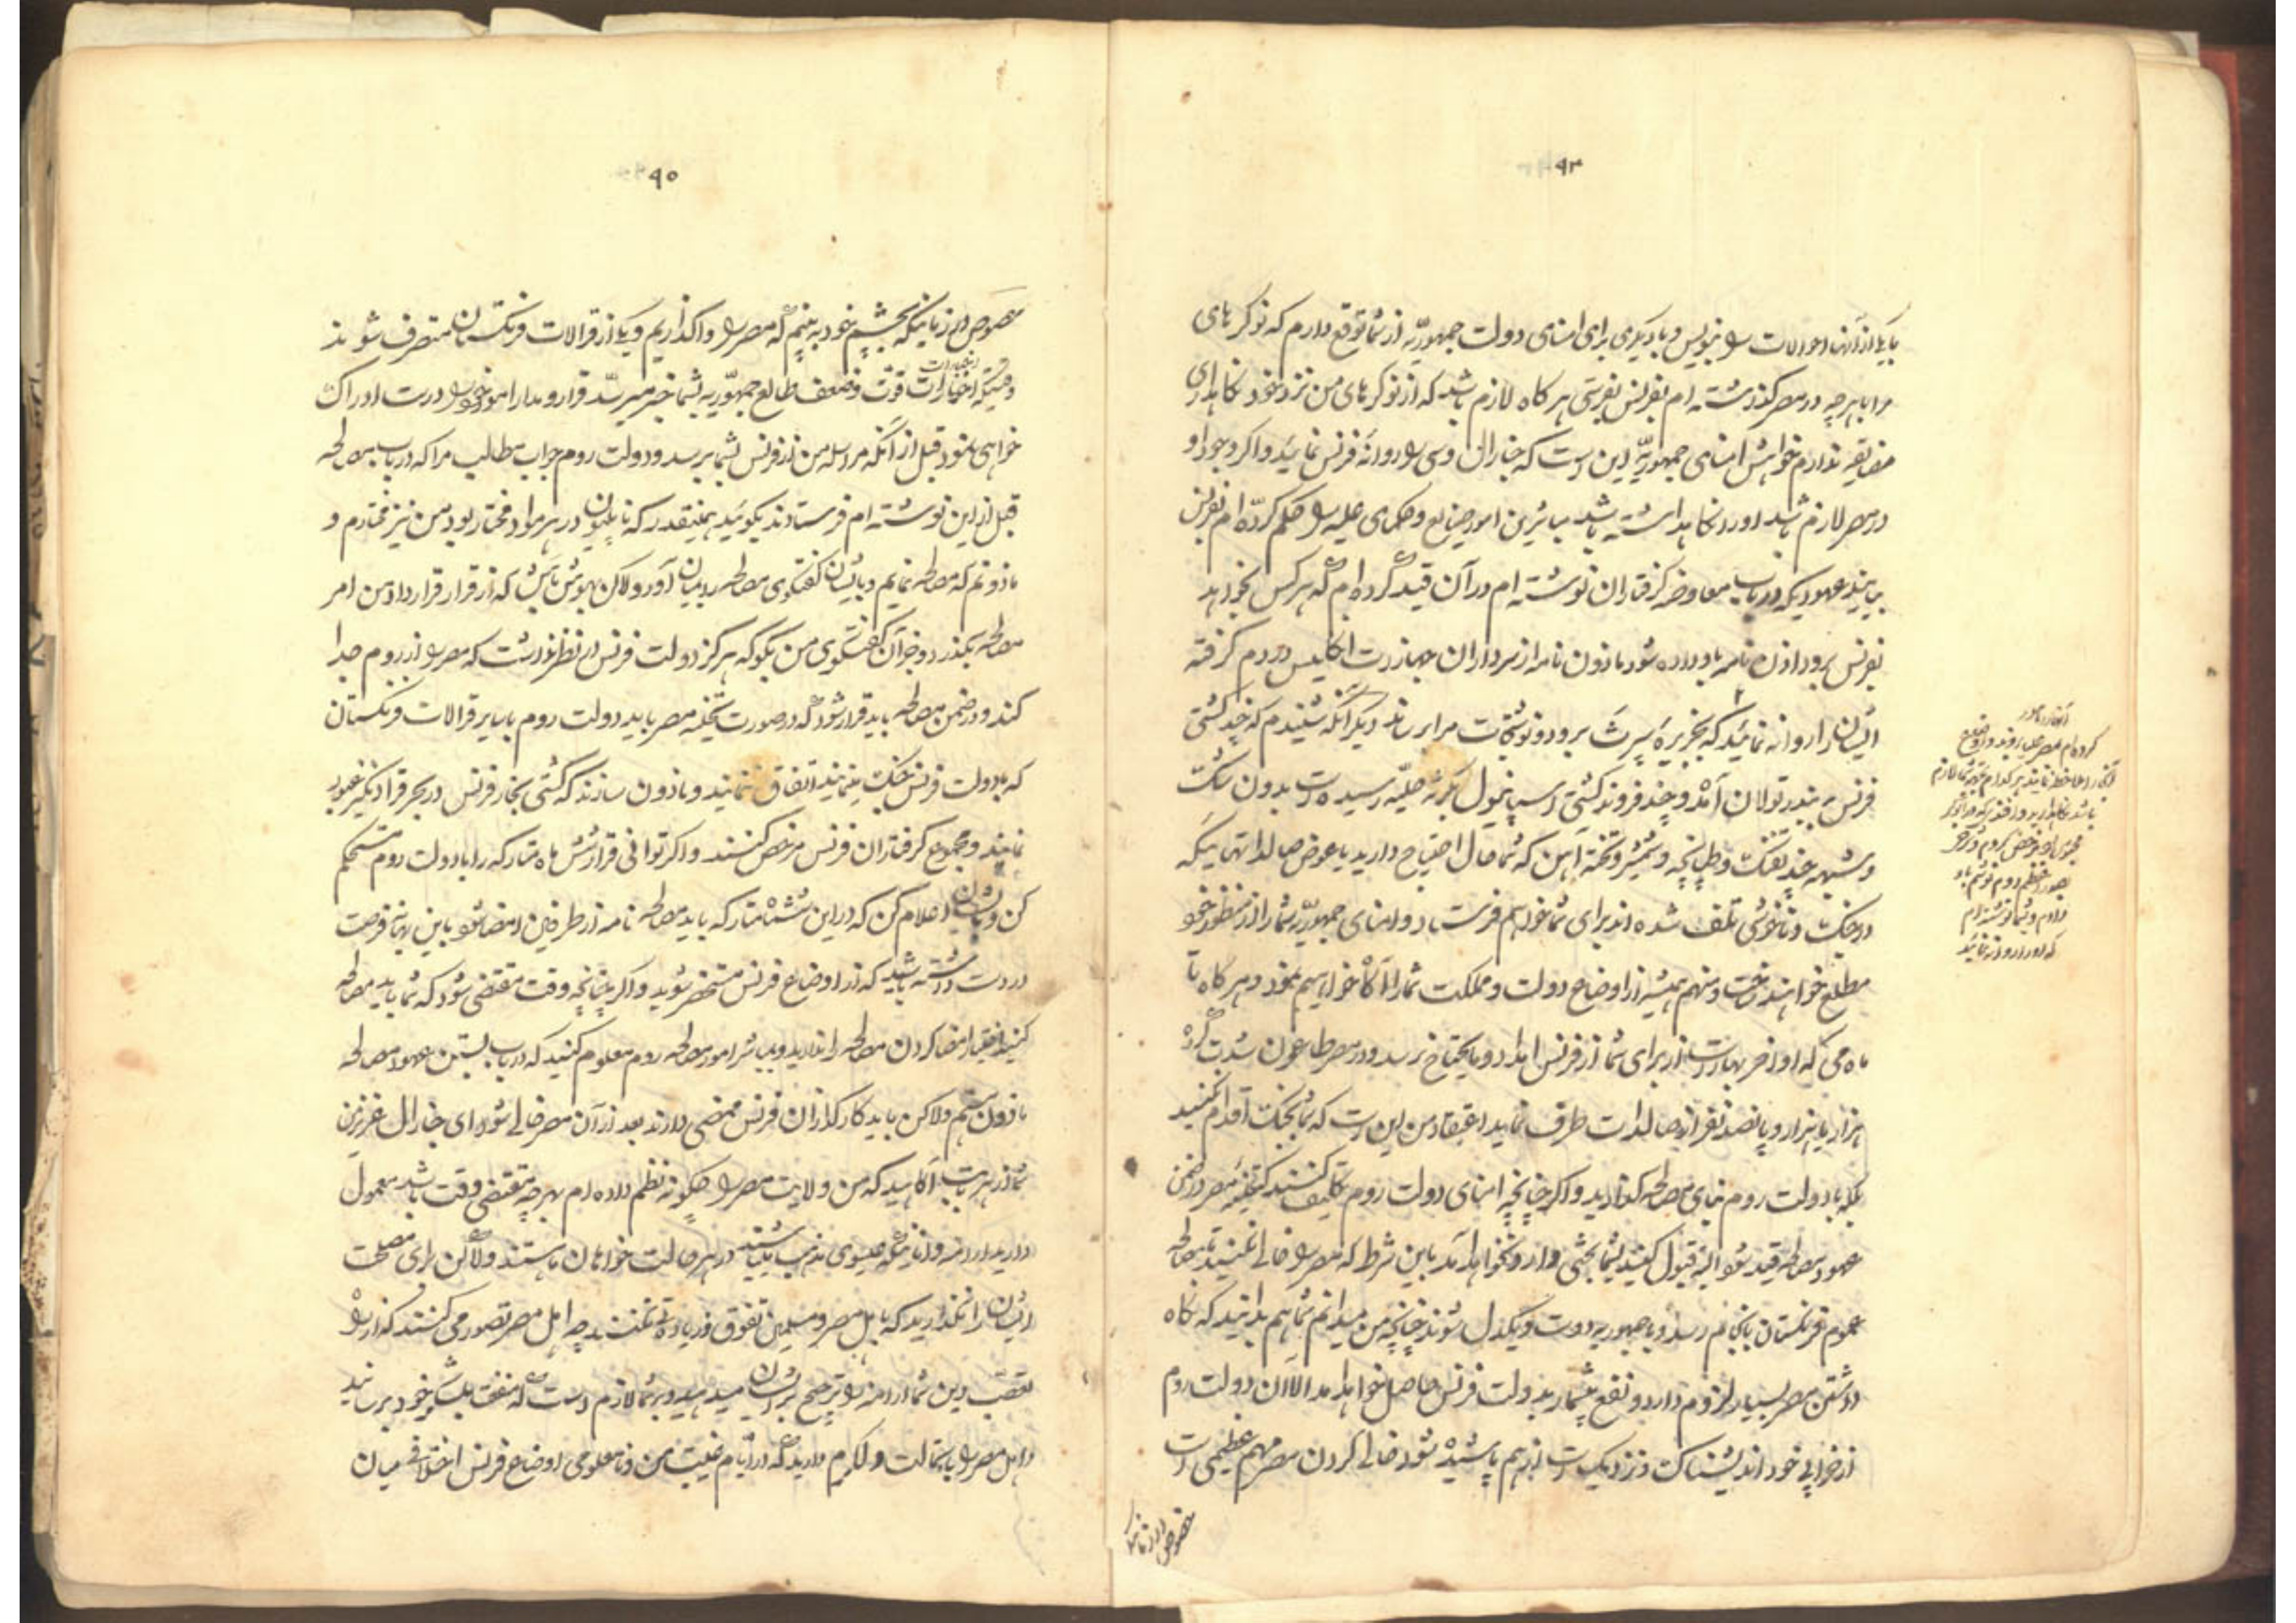 ۹۳
یا یکی از آن احوالات را بنویس و یا دیگری برای امنای دولت جمهوریّه از شما توقع دارم که نوکرهای
مرا با هر چه در مصر گذاشته ام بفرنس بفرستی هر گاه لازم باشد که از نوکرهای من نزد خود نگاهداری
مضایقه ندارم خواهش امنای جمهوریّه این است که جنارال دسی را روانهٔ فرنس نمائید و اگر وجود او
در مصر لازم باشد او را نگاهداشته باشد مباشرین امور صنایع و حکمای علمیه را حکم کرده ام بفرنس
بیایند عهودیکه در باب معاوضه گرفتاران نوشته ام در آن قید کرده ام که هر کس بخواهد
بفرنس برود اذن نامه باو داده شود ماذون نامه از سرداران جهازات انگلیس در دم گرفته
ایشان را روانه نمائید که بجزیرهٔ سپرث برود و نوشتجات مرا برساند دیگر آنکه شنیدم که چند کشتی
فرنس به بندر تولان آمد و چند فروند کشتی اسپانیول رسیده است بدون شک
و شبهه چند تفنگ و طپانچه و شمشیر و تخته آهن که شما حال احتیاج دارید با عوض صالداتهائیکه
در جنگ و ناخوشی تلف شده اند برای شما خواهم فرستاد و امنای جمهوریّه شما را از منظور خود
مطلع خواهند ساخت و منهم همیشه از اوضاع دولت و مملکت شما را آگاه خواهم نمود و هر گاه تا
ماه می که اواخر بهار است از برای شما از فرنس امداد و مایحتاج نرسد و در مصر طاعون شدت کرده
هزار یا هزار و پانصد نفر از صالدات طرف نماید اعتقاد من این است که شما بجنگ اقدام نکنید
بلکه با دولت روم بنای مصالحه گذارید و اگر چنانچه امنای دولت روم تکلیف کنند که تخلیهٔ مصر در ضمن
عهود مصالحه قید شود البته قبول کنید بشما بحثی وارد نخواهد آمد باین شرط که مصر را خالی نکنید تا مصالحه
عموم فرنگستان بانجام رسد و با جمهوریه دوست و یکدل شوند چنانچه من میدانم شما هم بدانید که نگاه
داشتن مصر بسیار لزوم دارد و نفع بیشمار بدولت فرنس حاصل خواهد آمد الآن دولت روم
از خرابی خود اندیشناک و نزدیک است از هم پاشیده شود خالی کردن مصر مهم عظیمی است
کرده ام
باشد نگاهدارید
بصدر اعظم روم
دادم و بشما نوشته ام
که او را روانه نمائید
خصوص در زمانیکه
۹۵
خصوص در زمانیکه بچشم خود به بینیم که مصر را واگذاریم و یکی از قرالات فرنگستان متصرف شوند
وقتیکه اخبارات قوت و ضعف طالع جمهوّریه بشما خبر میرسد قرار و مدار امور خود را درست ادراک
خواهی نمود قبل از آنکه مراسله من از فرنس بشما برسد و دولت روم جواب مطالب مرا که در باب مصالحه
قبل از این نوشته ام فرستادند بگوئید همینقدر که ناپلیون در هر مواد مختار بود من نیز مختارم و
ماذونم که مصالحه نمایم و با ایشان گفتگوی مصالحه بمیان آور ولاکن بهوش باش که از قرار قرارداد من امر
مصالحه بگذرد و در آن گفتگوی من بگو که هرگز دولت فرنس در نظر نداشت که مصر را از روم جدا
کند و در ضمن مصالحه باید قرار شود که در صورت تخلیه مصر باید دولت روم با سایر قرالات فرنگستان
که با دولت فرنس جنگ مینمایند اتفاق ننمایند و ماذون سازند که کشتی تجار فرنس در بحر قرا دنگیز عبور
نمایند و مجموع گرفتاران فرنس مرخص کنند و اگر توانی قرار شش ماه متارکه را با دولت روم مستحکم
کن و بایشان اعلام کن که در این ششماه متارکه باید مصالحه نامه از طرفین امضا شود باین بهانه فرصت
در دست داشته باشید که از اوضاع فرنس مستحضر شوید و اگر چنانچه وقت مقتضی شود که شما باید مصالحه
کنید اختیار امضا کردن مصالحه را ندارید و بمباشر امور مصالحه روم معلوم کنید که در باب بستن عهود مصالحه
ماذون هستم ولاکن باید کارگذاران فرنس ممضی دارند بعد از آن مصر خالی شود ای جنارال عزیز من
شما از هر بابت آگاهید که من ولایت مصر را چگونه نظم داده ام بهر چه مقتضی وقت باشد معمول
دارید ارامنه و آنانیکه عیسوی مذهب باشند در هر حالت خواهان ما هستند ولاکن رای مصلحت
ایشان را نگذارید که باهل مصر و مسلمین تفوق و زیادتی کنند چه اهل مصر تصور می کنند که از راه
تعصب دین شما ارامنه را ترجیح بر ایشان میدهید و بر شما لازم است که منفعت بلشکر خود برسانید
و اهل مصر را باستمالت و اکرام دارید که در ایام غیبت من و نامعلومی اوضاع فرنس اختلافی میان